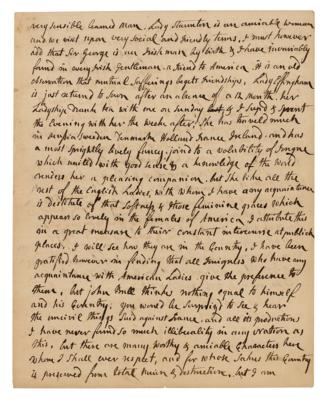 very sensible learned Man. Lady Staunton is an amiable woman
and we visit upon very social and friendly terms, I must however
add that Sir George is an Irish man by birth & I have invariably
found in every Irish Gentleman, a Friend to America. It is an old
observation that mutual Sufferings begets Friendships, Lady Effingham
is just returnd to Town after an absence of a 12 Month. her
Ladyship drank tea with me on Sunday & I Supd & spent
the Evening with her the week after. She has traveld much
in Russia Sweeden Denmark Holland France Ireland. and has
a most Sprightly lively fancy, joind to a volubility of Tongue
which united with good Sense & a knowledge of the world
renders her a pleasing companion. but She like all the
rest of the English Ladies, with whom I have any acquaintance
is destitute of that Softness & those feminine graces which
appear so lovely in the females of America. I attribute this
in a great measure to their constant intercourse at publick
places. I will see how they are in the Country, I have been
gratified however in finding that all Foreigners who have any
acquaintance with American Ladies give the preference to
them, but john Bull thinks nothing equal to himself
and his Country; you would be Surprizd to see & hear
the uncivil things Said against France. and all its productions
I have never found so much illiberality in any Nation as
this, but there are many worthy & amiable Characters here
whom I Shall ever respect, and for whose Sakes this Country
is preserved from total ruin & destruction. but I am